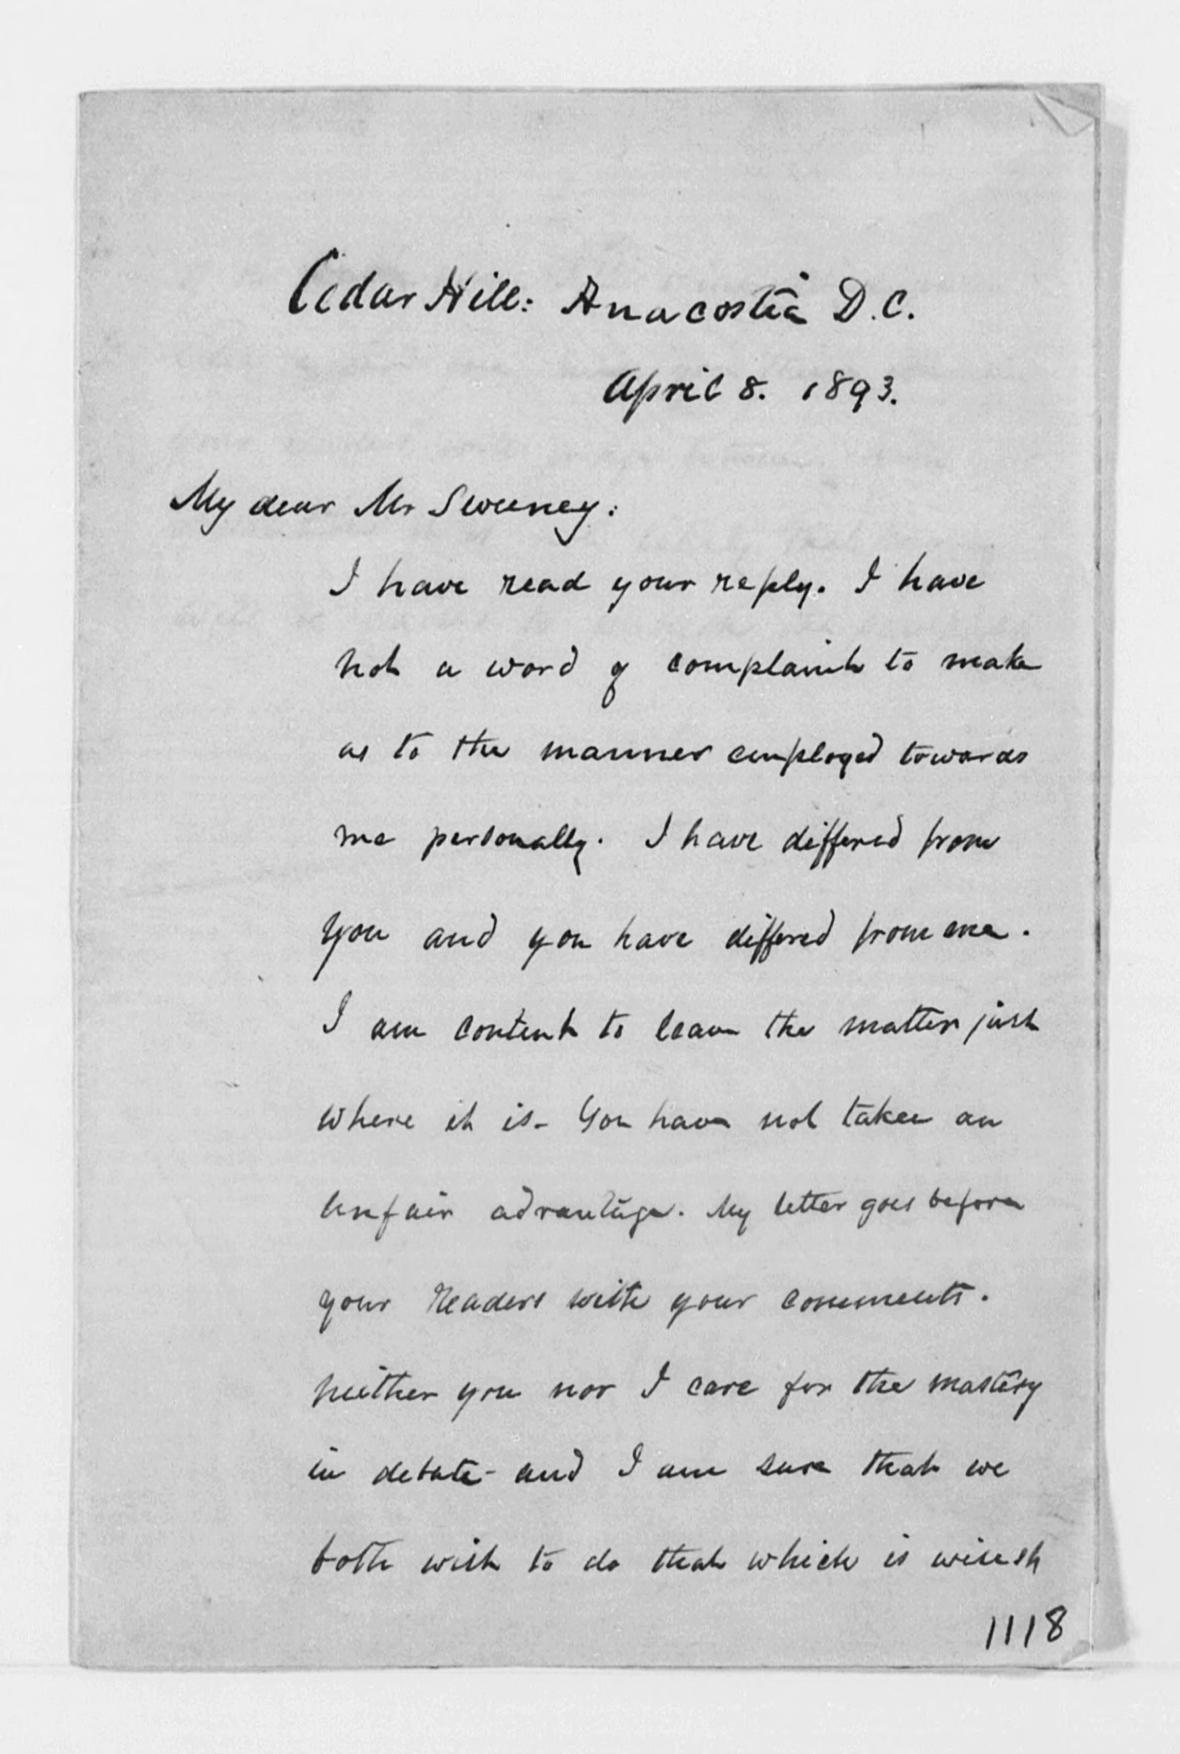 Cedar Hill: Anacostia D.C.
April 8. 1893.
My dear Mr Sweeney:
I have read your reply. I have
not a word of complaint to make
as to the manner employed towards
me personally. I have differed from
you and you have differed from me.
I am content to leave the matter just
where it is– You have not taken an
unfair advantage. My letter goes before
your readers with your comments.
Neither you nor I care for the mastery
in debate– and I am sure that we
both wish to do that which is wisest
1118